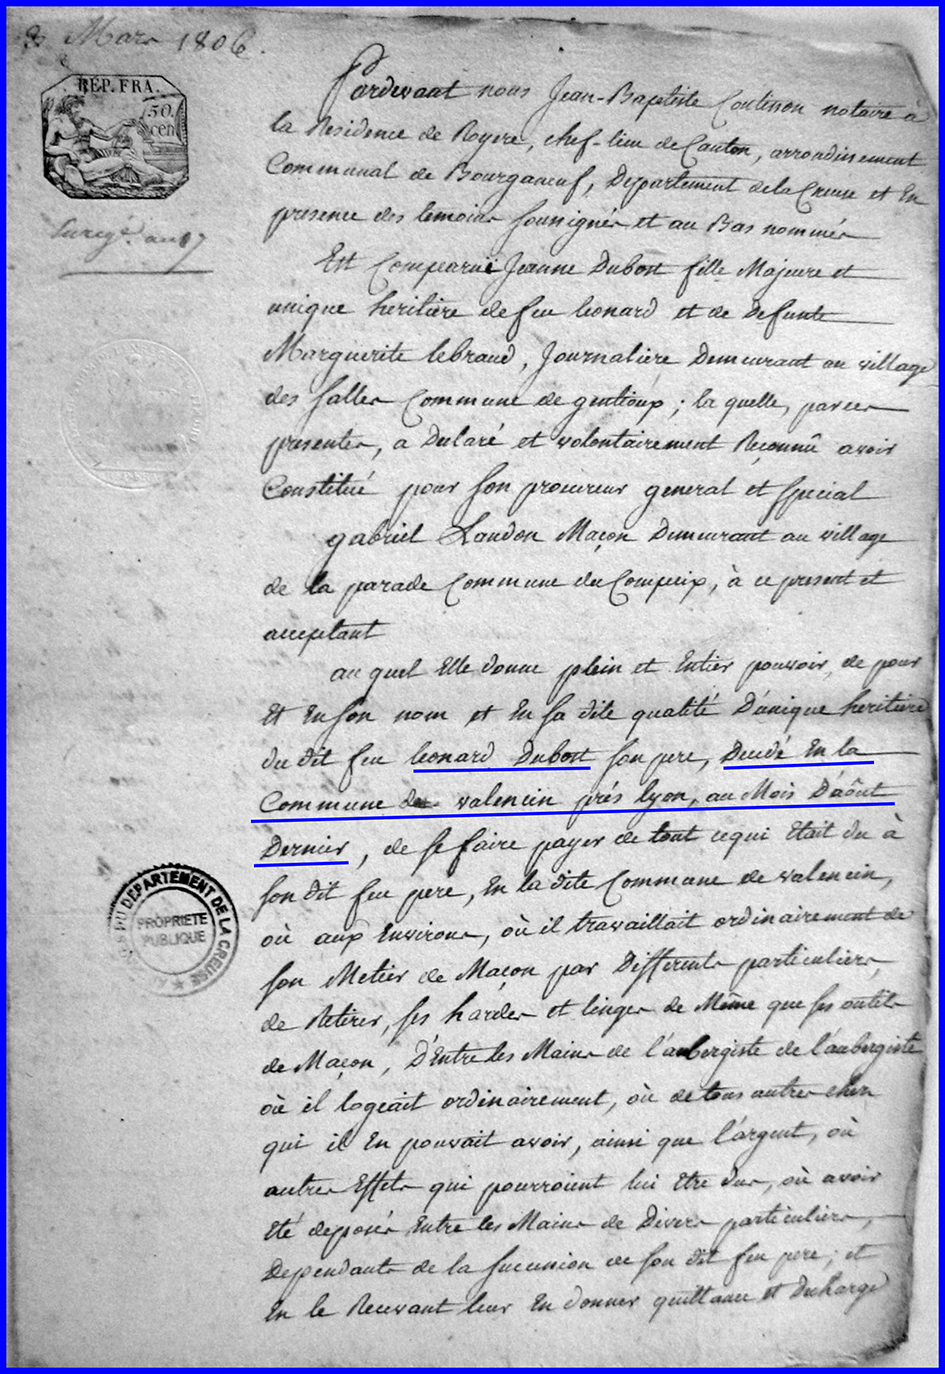 8 Mars 1806.
REP. FRA.
50.
cen
Pardevant nous Jean-Baptiste Coutisson notaire à
la Residence de Royere, chef-lieu de Canton, arrondissement
Communal de Bourganeuf, Departement de la Creuse et En
presence des temoins soussignés et au Bas nommés
Est Comparuë Jeanne Dubost fille Majeure et
unique heritiere de feu leonard et de Defunte
Marguerite lebraud, Journaliere Demeurant au village
des salles Commune de gentioux; la quelle, par ces
presentes, a Declaré et volontairement Reconnû avoir
Constitué pour son procureur general et special
gabriel Landon Maçon Demeurant au village
de la parade Commune du Compeix, à ce present et
acceptant
au quel Elle donne plein et Entier pouvoir, de pour
Et En son nom et En sa dite qualité D'unique heritiere
du dit feu leonard Dubost son pere, Decedé En la
Commune de valencin prés lyon, au Mois D'août
Dernier, de se faire payer de tout ce qui Etait du à
son dit feu pere, En la dite Commune de valencin,
où aux Environs, où il travaillait ordinairement de
son Metier de Maçon par Differents particuliers,
de Retirer, ses hardes et linges de Même que ses outils
de Maçon, D'Entre les Mains de l'aubergiste de l'aubergiste
où il logeait ordinairement, où de tous autres chez
qui il En pouvait avoir, ainsi que l'argent, où
autres Effets qui pourroient lui Etre dus, où avoir
Eté deposés Entre les Mains de Divers particuliers,
Dependants de la succession de son dit feu pere; et
En le Recevant leur En donner quittance et Decharge
DU DEPARTEMENT DE LA CREUSE
PROPRIETE
PUBLIQUE